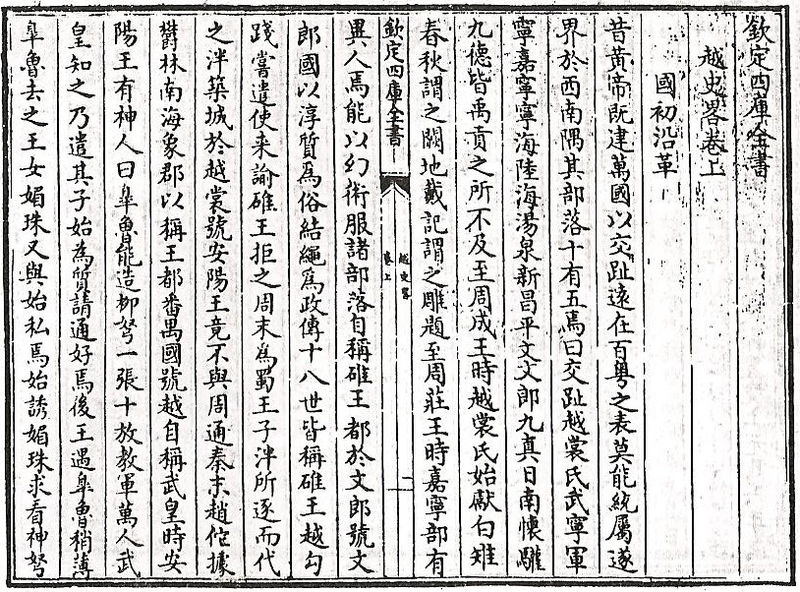 欽定四庫全書
越史畧卷上
國初沿革
昔黄帝既建萬國以交趾逺在百粤之表莫能統屬遂
界於西南隅其部落十有五焉曰交趾越裳氏武寧軍
寧嘉寧寧海陸海湯泉新昌平文文郎九真日南懷驩
九德皆禹貢之所不及至周成王時越裳氏始獻白雉
春秋謂之闕地戴記謂之雕題至周莊王時嘉寧部有
欽定四庫全書
越史畧
卷上
一
異人焉能以幻術服諸部落自稱碓王都於文郎號文
郎國以淳質為俗結繩為政傳十八世皆稱碓王越勾
踐嘗遣使来諭碓王拒之周末為蜀王子泮所逐而代
之泮築城於越裳號安陽王竟不與周通秦末趙佗據
欝林南海象郡以稱王都番禺國號越自稱武皇時安
陽王有神人曰臯魯能造柳弩一張十放教軍萬人武
皇知之乃遣其子始為質請通好焉後王遇臯魯稍薄
臯魯去之王女媚珠又與始私焉始誘媚珠求看神弩